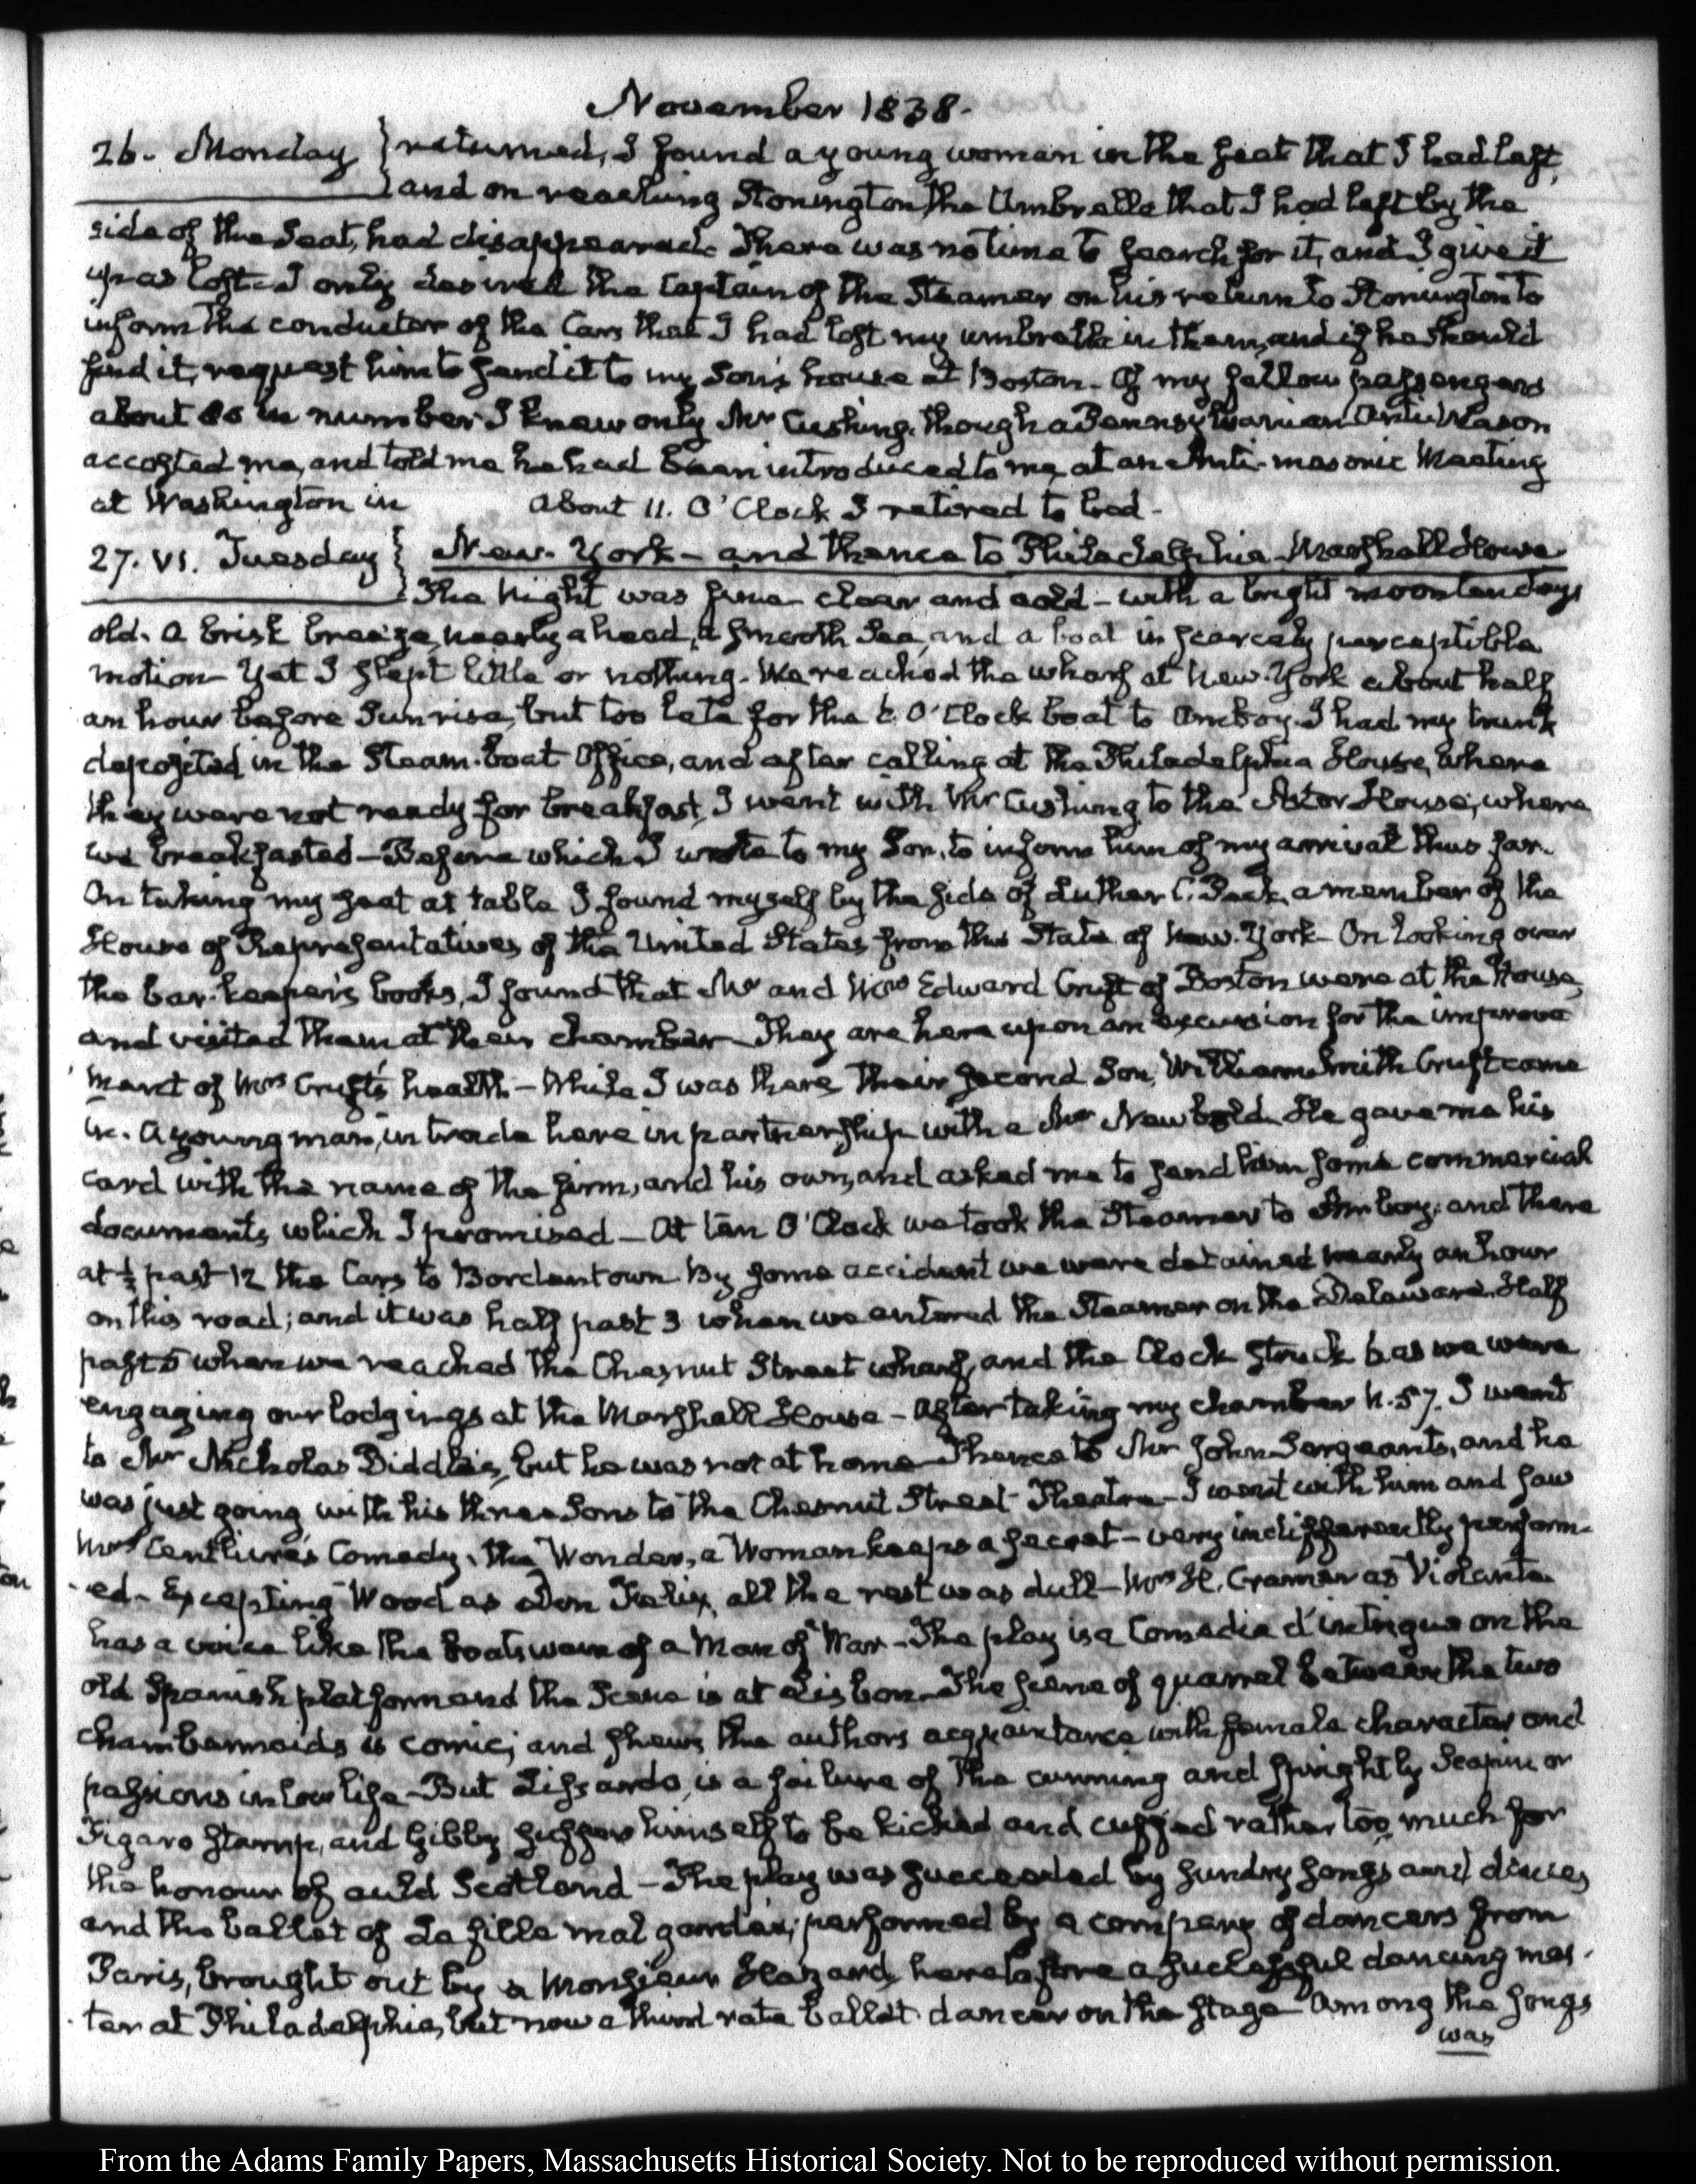 November 1838.
26. Monday } returned, I found a young woman in the seat that I had left,
and on reaching Stonington, the Umbrella that I had left by the
side of the Seat, had disappeared. There was no time to search for it, and I give it
up as lost. I only desired the Captain of the Steamer on his return to Stonington to
inform the conductor of the Cars that I had lost my umbrella in them, and if he should
find it, request him to send it to my Son's house at Boston. Of my fellow passengers
about 80 in number I knew only Mr Cushing, though a Pennsylvanian Anti Mason
accosted me, and told me he had been introduced to me, at an Anti-masonic Meeting
at Washington in About 11. O'Clock I retired to bed.
27. VI. Tuesday } New-York - and thence to Philadelphia - Marshall House
The Night was fine - clear and cold - with a bright moon ten days
old. A brisk breeze, nearly ahead, a smooth Sea, and a boat in scarcely perceptible
motion - Yet I slept little or nothing. We reached the wharf at New-York about half
an hour before Sunrise, but too late for the 6. O'Clock boat to Amboy. I had my trunk
deposited in the Steam-boat Office, and after calling at the Philadelphia House, where
they were not ready for breakfast, I went with Mr Cushing to the Astor House, where
we breakfasted - Before which I wrote to my Son, to inform him of my arrival thus far.
On taking my seat at table I found myself by the side of Luther C. Peck, a member of the
House of Representatives of the United States from this State of New-York - On looking over
the bar-keeper's books, I found that Mr and Mrs Edward Cruft of Boston were at the House,
and visited them at their chamber - They are here upon an excursion for the improve
ment of Mrs Cruft's health - While I was there their second Son, William Smith Cruft came
in. A young man, in trade here in partnership with a Mr Newbold. He gave me his
card with the name of the firm, and his own, and asked me to send him some commercial
documents, which I promised - At ten O'Clock we took the Steamer to Amboy; and there
at ½ past 12 the Cars to Bordentown. By some accident we were detained nearly an hour
on this road; and it was half past 3 when we entered the Steamer on the Delaware. Half
past 5 when we reached the Chesnut Street wharf, and the Clock struck 6 as we were
engaging our lodgings at the Marshall House - After taking my chamber N. 57. I went
to Mr Nicholas Biddle's, but he was not at home - Thence to Mr John Sergeant's, and he
was just going with his three Sons to the Chesnut Street Theatre - I went with him and saw
Mrs Centlivre's Comedy, the Wonder, a Woman keeps a secret - very indifferently perform-
-ed - Excepting Wood as Don Felix, all the rest was dull - Mrs H. Cramer as Violante
has a voice like the boatswain of a Man of War - The play is a Comedie d'intrigue on the
old Spanish platform and the Scene is at Lisbon - The scene of quarrel between the two
chambermaids is comic; and shews the authors acquaintance with female character and
passions in low life - But Lissardo, is a failure of the cunning and sprightly Scapin or
Figaro stamp, and Gibby suffers himself to be kicked and cuffed rather too much for
the honour of auld Scotland - The play was succeeded by sundry songs and dances,
and the ballet of La fille mal gardée; performed by a company of dancers from
Paris, brought out by a Monsieur Hazard, heretofore a successful dancing mas-
-ter at Philadelphia, but now a third rate ballet-dancer on the stage. Among the songs
was
From the Adams Family Papers, Massachusetts Historical Society. Not to be reproduced without permission.